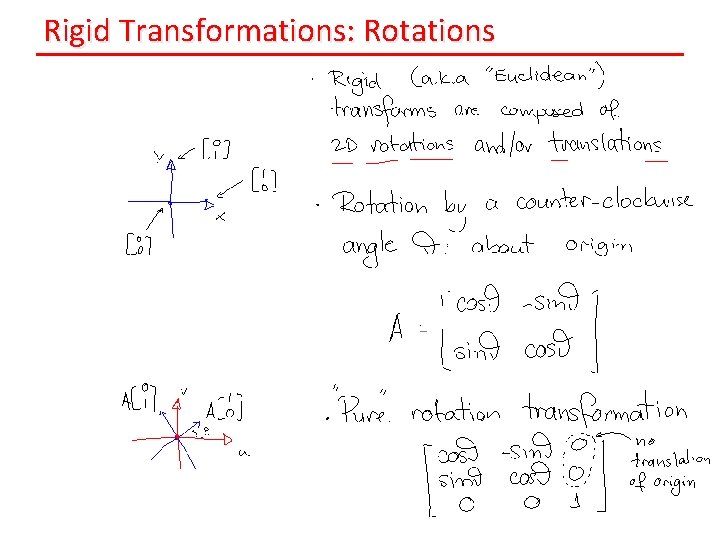 Rigid Transformations: Rotations
· Rigid (a.k.a "Euclidean")
transforms are composed of
2D rotations and/or translations
[0 1]
[1 0]
x
[0 0]
· Rotation by a counter-clockwise
angle θ: about origin
A = [cosθ -sinθ
sinθ cosθ]
A[0 1]
v
A[1 0]
u
· "Pure" rotation transformation
[cosθ -sinθ 0
sinθ cosθ 0
0 0 1]
no
translation
of origin